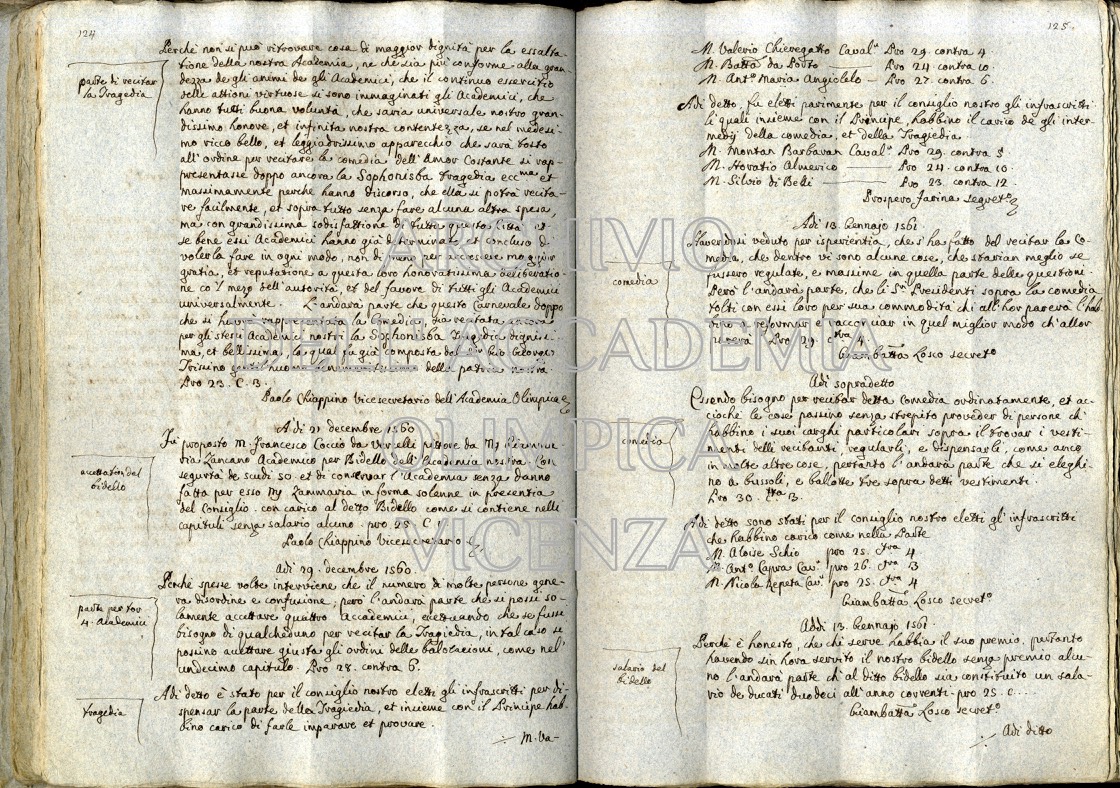 124
parte di recitar
la Tragedia
Perche non si può ritrovare cosa di maggior dignità per la essalta-
tione della nostra Academia, ne che sia più conforme alla gran-
dezza de gli animi de gli Academici, che il continuo essercitio
delle attioni virtuose si sono immaginati gli Academici, che
hanno tutti buona volontà, che saria universale nostro gran-
dissimo honore, et infinita nostra contentezza, se nel medesi-
mo ricco bello, et leggiadrissimo apparechio che sarà tosto
all'ordine per recitare la comedia dell'Amor Costante si rap-
presentasse doppo ancora la Sophonisba tragedia ecc.ma et
massimamente perche hanno discorso, che ella si potrà recita-
re facilmente, et sopra tutto senza fare alcuna altra spesa,
ma con grandissima sodisfattione di tutti questa Città et
se bene essi Academici hanno già determinato et concluso di
volerla fare in ogni modo, non di meno per accrescere maggior
gratia, et reputatione a questa loro honoratissima deliberatio-
ne co'l mezo dell'autorità, et del favore di tutti gli Academici
universalmente. L'andarà parte che questo Carnevale doppo
che si havrà rappresentata la Comedia, sia recitata ancora
per gli stessi Academici nostri la Sophonisba Tragedia dignissi-
ma, et bellissima la qual fu già composta dal Sr Gio Giorgio
Trissino della patria nostra
Pro 23. C. 3.
Paolo Chiappino Vicesecretario dell'Academia Olimpica
Adi 21 decembre 1560
accettation del
bidello
Fu proposto M. Francesco Coccio da Vercelli pittore da Mr Zanma-
ria Zancano Academico per Bidello dell'Academia nostra. Con
segurtà de scudi 50. et di conservar l'Academia senza danno
fatta per esso Mr Zanmaria in forma solenne in presentia
del Consiglio. con carico al detto Bidello come si contiene nelli
capituli senza salario alcuno. pro 25. C. 1
Paolo Chiappino Vicesecretario
Adi 29. decembre 1560.
parte per tor
4. Academici
Perche spesse volte interviene che il numero di molte persone gene-
ra disordine e confusione, però l'andarà parte che si possi so-
lamente accettare quattro Academici, eccettuando che se fusse
bisogno di qualcheduno per recitar la Tragiedia, in tal caso si
possino accettare giusta gli ordini delle balotationi, come nel'
undecimo capitulo. Pro 28. contra 6.
tragedia
Adi detto è stato per il consiglio nostro eletti gli infrascritti per di-
spensar la parte della Tragiedia, et insieme con il Principe hab-
bino carico di farle imparare et provare.
M. Va-
125.
M. Valerio Chieregatto Caval.r Pro 29. contra 4
M. Batta da Porto Pro 24. contra 10.
M. Ant.o Maria Angiolelo Pro 27. contra 6.
Adi detto, fu eletti parimente per il consiglio nostro gli infrascritti
li quali insieme con il Principe, habbino il carico de gli inter-
medij della comedia, et della Tragiedia.
M. Montan Barbaran Caval.r Pro 29. contra 5
M. Horatio Almerico Pro 24. contra 10.
M. Silvio di Belli Pro 23. contra 12
Prospero farina segret.o
Adi 13. Gennajo 1561.
comedia
Havendosi veduto per isperientia, che s'ha fatto del recitar la Co-
media, che dentro vi sono alcune cose, che starian meglio se
fussero regulate, e massime in quella parte delle questioni
Però l'andarà parte, che li S.ri Presidenti sopra la comedia
tolti con essi loro per sua commodità chi all'hor parerà l'hab
bino a reformar e racconciar in quel miglior modo ch'allor
parerà. Pro 29. c.tra 4.
Giambatta Losco secret.o
Adi sopradetto
comedia
Essendo bisogno per recitar detta comedia ordinatamente, et ac-
cioché le cose passino senza strepito proveder di persone ch'
habbino i suoi carghi particolari sopra il trovar i vesti-
menti delli recitanti, regularli, e dispensarli, come anco
in molte altre cose, pertanto l'andarà parte che si eleghi-
no a bussoli, e ballotte tre sopra detti vestimenti.
Pro 30. C.tra 3.
Adi detto sono stati per il consiglio nostro eletti gl'infrascritti
che habbino carico come nella Parte
M. Aloise Schio pro 25. c.tra 4
M. Ant.o Capra Cav.r pro 26. C.tra 3
M. Nicola Repeta Cav.r pro 25. C.tra 4
Giambatta Losco secret.o
Addi 13. Gennajo 1561.
salario del
bidello
Perche è honesto, che chi serve habbia il suo premio, pertanto
havendo sin hora servito il nostro bidello senza premio alcu-
no l'andarà parte ch'al ditto bidello sia constituito un sala-
rio de ducati duodeci all'anno correnti. pro 25. c....
Giambatta Losco secret.o
Adi ditto
ARCHIVIO
DELLA ACCADEMIA
OLIMPICA
VICENZA